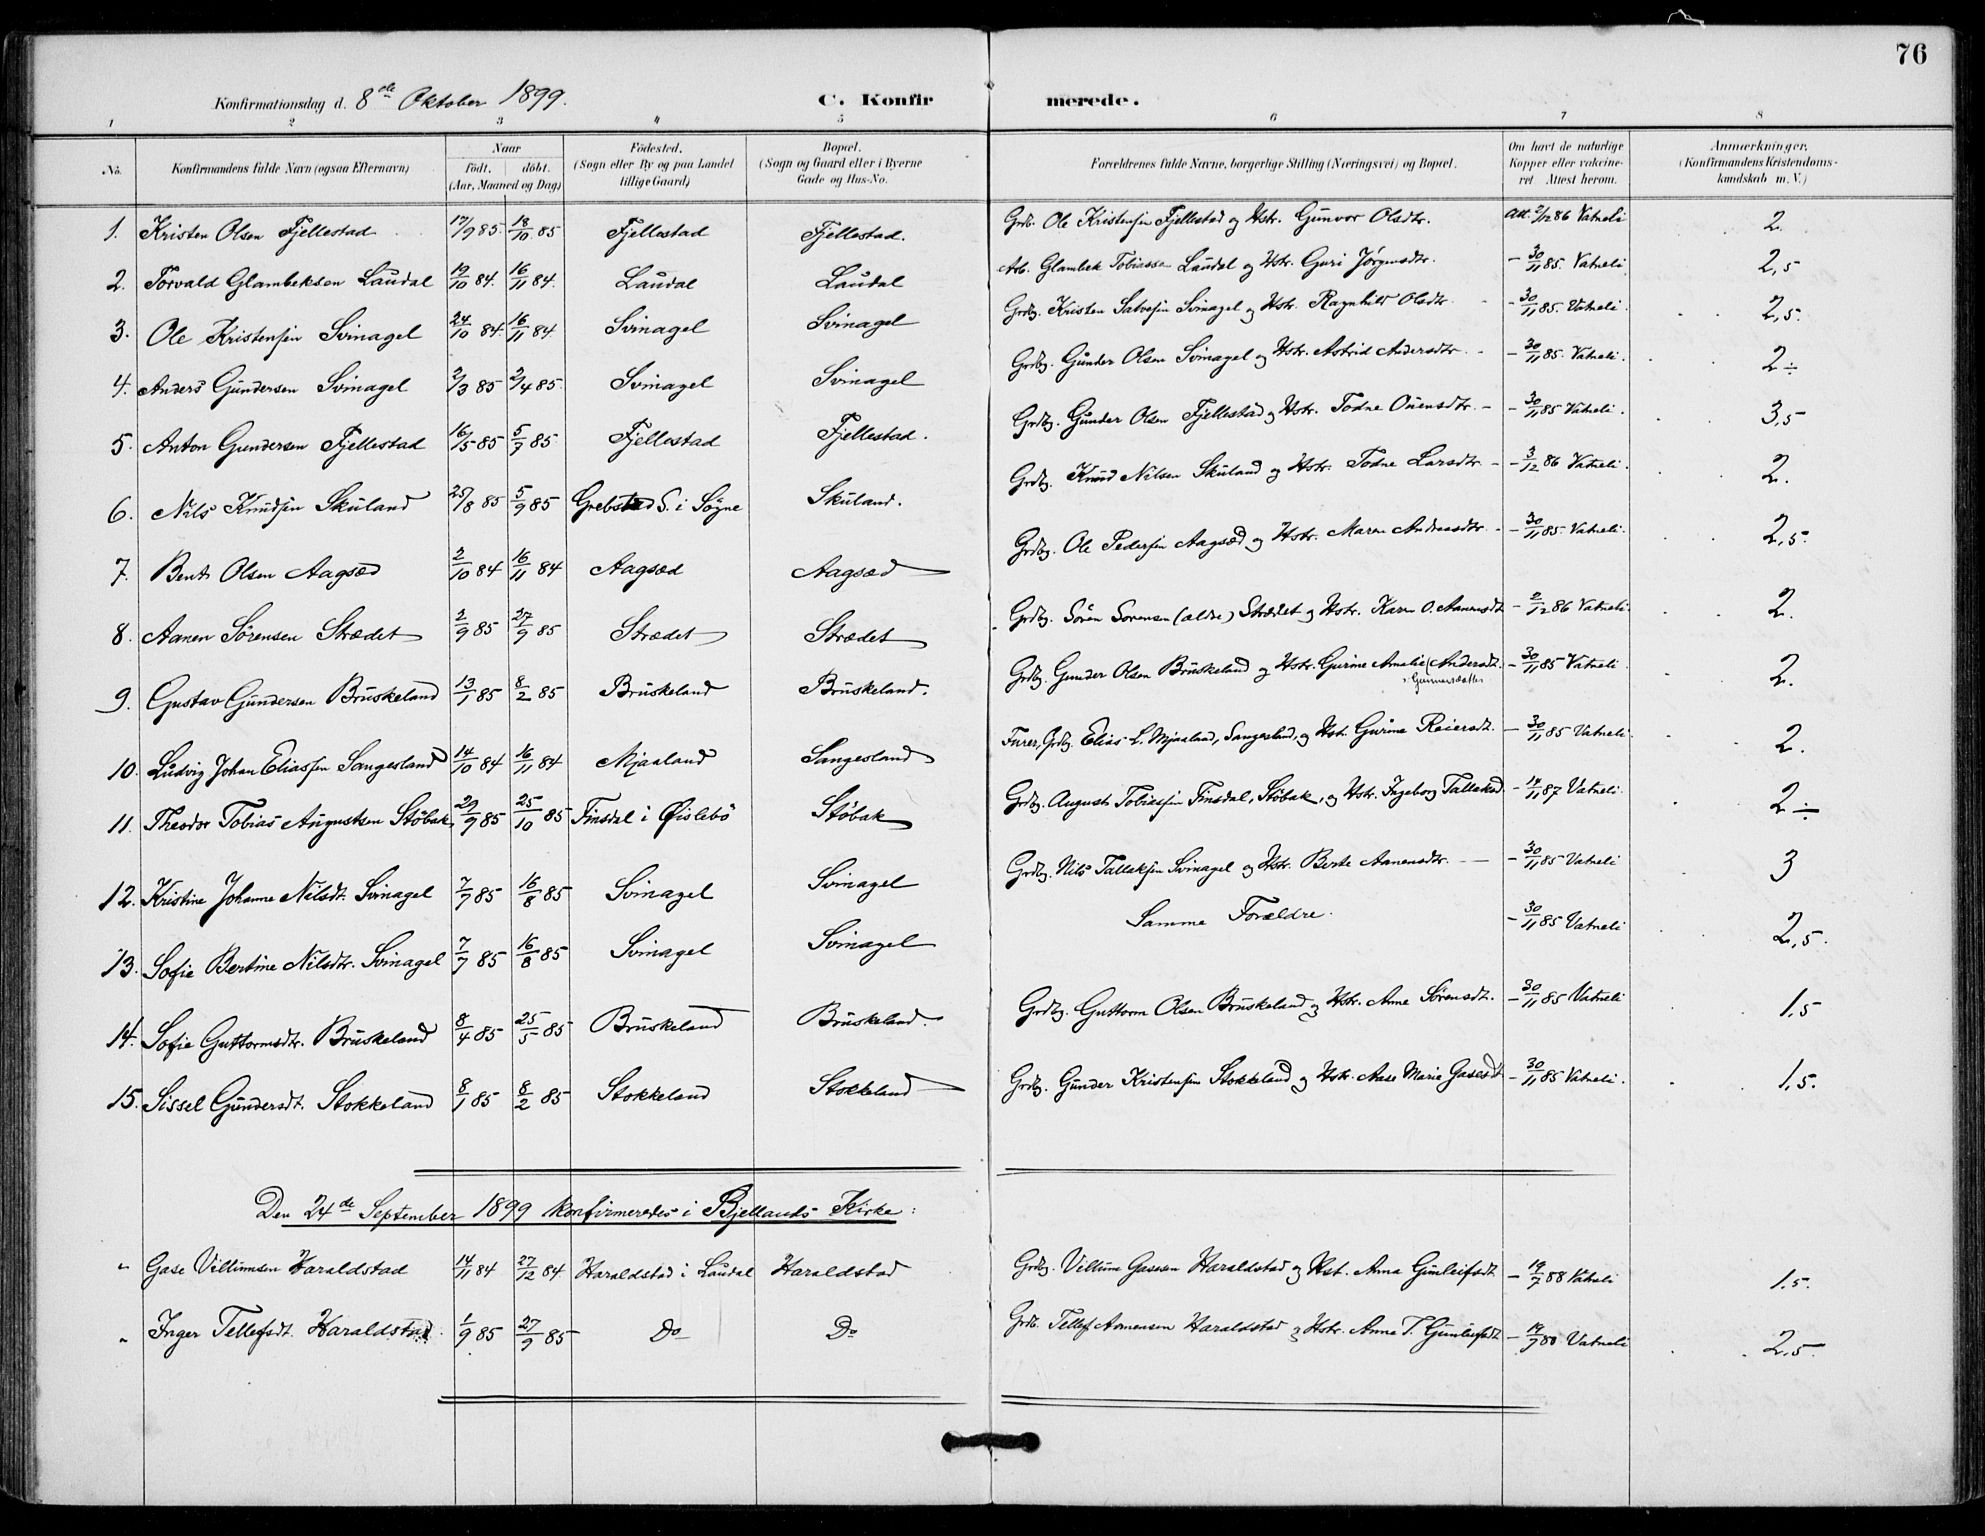 76
Konfirmationsdag d. 8de Oktober 1899. C. Konfirmerede.
1 2 3 4 5 6 7 8
No. Konfirmandens fulde Navn (ogsaa Efternavn) Naar født. døbt. (Aar, Maaned og Dag) Fødested. (Sogn eller By og paa Landet tillige Gaard) Bopæl. (Sogn og Gaard eller i Byerne Gade og Hus-No. Forældrenes fulde Navne, borgerlige Stilling (Næringsvei) og Bopæl. Om havt de naturlige Kopper eller vaccineret. Attest herom. Anmærkninger. (Konfirmandens Kristendomskundskab m. V.)
1. Kristen Olsen Fjellestad 17/9 85 18/10 85 Fjellestad Fjellestad. Grdb. Ole Kristensen Fjellestad og Hstr. Gunvor Olsdtr. Att. 2/12 86 Vatneli 2.
2. Torvald Glambeksen Laudal 19/10 84. 16/11 84. Laudal Laudal Arb. Glambek Tobiassen Laudal og Hstr. Guri Jørgensdtr. - 30/11 85. Vatneli 2,5
3. Ole Kristensen Svinagel 24/10 84. 16/11 84. Svinagel Svinagel Grdbg. Kristen Salvesen Svinagel og Hstr. Ragnhild Olsdtr. - 30/11 85. Vatneli. 2,5.
4. Anders Gundersen Svinagel 2/3 85 2/4 85. Svinagel Svinagel Grdbg. Gunder Olsen Svinagel og Hstr. Astrid Andersdtr. - 30/11 85. Vatneli. 2 ÷
5. Anton Gundersen Fjellestad 16/5 85 5/7 85. Fjellestad Fjellestad. Grdbg. Gunder Olsen Fjellestad og Hstr. Todne Ouensdtr. - 30/11 85 Vatneli. 3,5
6. Nils Knudsen Skuland 25/8 85 5/9 85 Grebstad S. i Søgne Skuland. Grdbg. Knud Nilsen Skuland og Hstr. Todne Larsdtr. - 3/12 86 Vatneli. 2.
7. Bent Olsen Aagsæd 2/10 84 16/11 84 Aagsæd Aagsæd Grdbg. Ole Pedersen Aagsæd og Hstr. Maren Andreasdtr. - 30/11 85. Vatneli. 2,5.
8. Aanen Sørensen Strædet 2/9 85 27/9 85 Strædet Strædet Grdbg. Søren Sørensen (ældre) Strædet og Hstr. Karen O. Aanensdt. - 2/12 86 Vatneli. 2.
9. Gustav Gundersen Bruskeland 13/1 85 8/2 85 Bruskeland Bruskeland. Grdbg. Gunder Olsen Bruskeland og Hstr. Gurine Amalie (Andersdt. - 30/11 85 Vatneli. 2.
10. Ludvig Johan Eliassen Sangesland 14/10 84 16/11 84 Mjaaland Sangesland Furer, Grdbg. Elias L. Mjaaland, Sangesland, og Hst. Gurine Reiersdt. - 30/11 85 Vatneli. 2.
11. Theodor Tobias Augustsen Støbak, 29/9 85 25/10 85 Finsdal i Øislebø Støbak Grdbg. August Tobiassen Finsdal, Støbak, og Hstr. Ingeborg Tallaksd. - 14/11 87 Vatneli. 2 ÷
12. Kristine Johanne Nilsdt. Svinagel 7/7 85 16/8 85 Svinagel Svinagel Grdbg. Nils Tallaksen Svinagel og Hstr. Berte Aanensdtr. - 30/11 85 Vatneli 3
13. Sofie Bertine Nilsdtr. Svinagel 7/7 85 16/8 85 Svinagel Svinagel Samme Forældre. - 30/11 85 Vatneli 2,5.
14. Sofie Guttormsdtr. Bruskeland 8/4 85 25/5 85 Bruskeland Bruskeland. Grdbg. Guttorm Olsen Bruskeland og Hstr. Anne Sørensdt. - 30/11 85 Vatneli 1,5
15. Sissel Gundersdt. Stokkeland 8/1 85 8/2 85 Stokkeland Stokkeland Grdbg. Gunder Kristensen Stokkeland og Hstr. Aase Marie Gasesdt - 30/11 85 Vatneli. 1,5.
Den 24de September 1899 konfirmeredes i Bjellands Kirke:
" Gase Villumsen Haraldstad 14/11 84 27/12 84 Haraldstad i Laudal Haraldstad Grdbg. Villum Gasesen Haraldstad og Hst. Anna Gunleifsdt - 19/7 88 Vatneli 1,5.
" Inger Tellefsdt. Haraldstad. 1/9 85 27/9 85 Do Do Grdb. Tellef Aanensen Haraldstad og Hstr. Anne T. Gunleifsdt - 19/7 88 Vatneli 2,5.